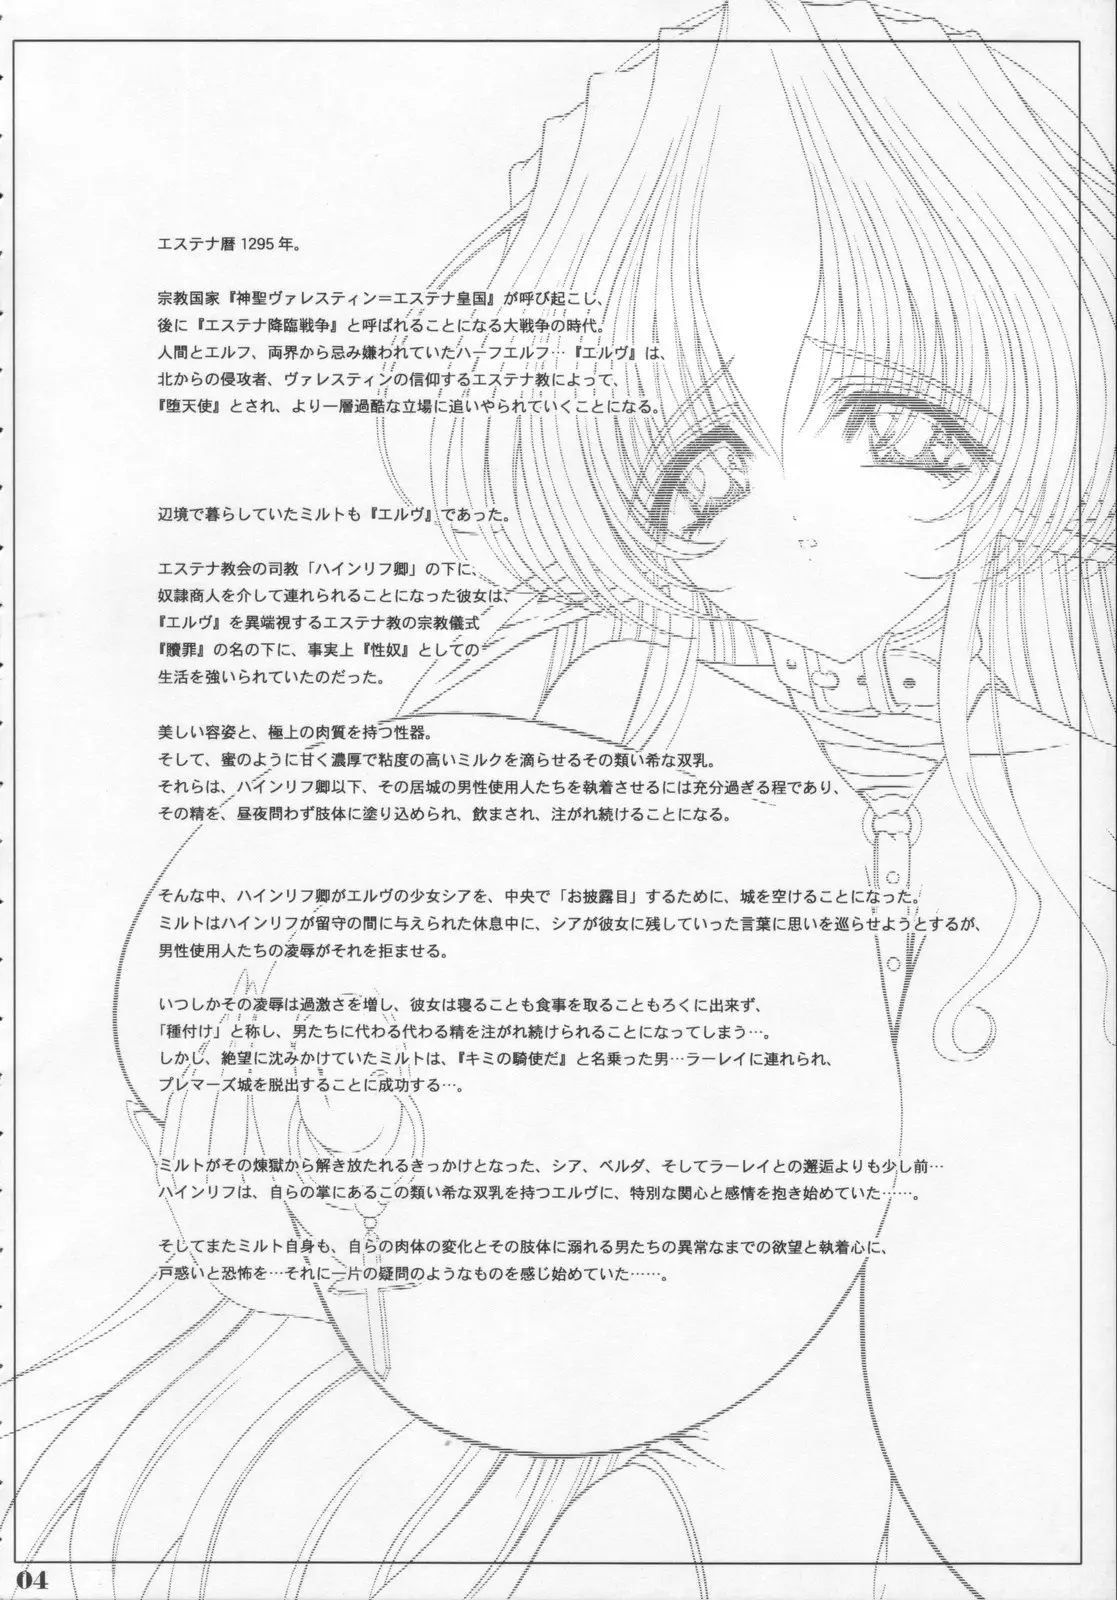 エステナ暦1295年。
宗教国家『神聖ヴァレスティン＝エステナ皇国』が呼び起こし、
後に『エステナ降臨戦争』と呼ばれることになる大戦争の時代。
人間とエルフ、両界から忌み嫌われていたハーフエルフ…『エルヴ』は、
北からの侵攻者、ヴァレスティンの信仰するエステナ教によって、
『堕天使』とされ、より一層過酷な立場に追いやられていくことになる。
辺境で暮らしていたミルトも『エルヴ』であった。
エステナ教会の司教「ハインリフ卿」の下に、
奴隷商人を介して連れられることになった彼女は、
『エルヴ』を異端視するエステナ教の宗教儀式
『贖罪』の名の下に、事実上『性奴』としての
生活を強いられていたのだった。
美しい容姿と、極上の肉質を持つ性器。
そして、蜜のように甘く濃厚で粘度の高いミルクを滴らせるその類い希な双乳。
それらは、ハインリフ卿以下、その居城の男性使用人たちを執着させるには充分過ぎる程であり、
その精を、昼夜問わず肢体に塗り込められ、飲まされ、注がれ続けることになる。
そんな中、ハインリフ卿がエルヴの少女シアを、中央で「お披露目」するために、城を空けることになった。
ミルトはハインリフが留守の間に与えられた休息中に、シアが彼女に残していった言葉に思いを巡らせようとするが、
男性使用人たちの凌辱がそれを拒ませる。
いつしかその凌辱は過激さを増し、彼女は寝ることも食事を取ることもろくに出来ず、
「種付け」と称し、男たちに代わる代わる精を注がれ続けられることになってしまう…。
しかし、絶望に沈みかけていたミルトは、『キミの騎使だ』と名乗った男…ラーレイに連れられ、
プレマーズ城を脱出することに成功する…。
ミルトがその煉獄から解き放たれるきっかけとなった、シア、ベルダ、そしてラーレイとの邂逅よりも少し前…
ハインリフは、自らの掌にあるこの類い希な双乳を持つエルヴに、特別な関心と感情を抱き始めていた……。
そしてまたミルト自身も、自らの肉体の変化とその肢体に溺れる男たちの異常なまでの欲望と執着心に、
戸惑いと恐怖を…それに一片の疑問のようなものを感じ始めていた……。
04